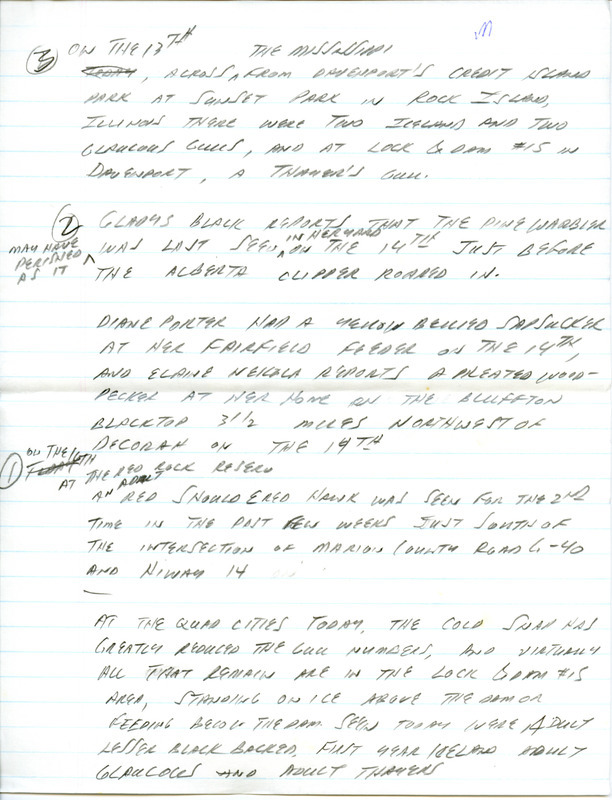 ③ ON THE 13TH THE MISSISSIPPI
TODAY, ACROSS ^ FROM DAVENPORT'S CREDIT ISLAND
PARK AT SUNSET PARK IN ROCK ISLAND,
ILLINOIS THERE WERE TWO ICELAND AND TWO
GLAUCOUS GULLS, AND AT LOCK & DAM #15 IN
DAVENPORT, A THAYER'S GULL.
② GLADYS BLACK REPORTS THAT THE PINE WARBLER
MAY HAVE PERISHED AS IT ^ WAS LAST SEEN ^ IN HER YARD ON THE 14TH JUST BEFORE
THE ALBERTA CLIPPER ROARED IN.
DIANE PORTER HAD A YELLOW BELLIED SAPSUCKER
AT HER FAIRFIELD FEEDER ON THE 14TH,
AND ELAINE REPORTS A PILEATED WOOD-
PECKER AT HER HOME ON THE BLUFFTON
BLACKTOP 3 1/2 MILES NORTHWEST OF
DECORAH ON THE 14TH
① ON THE 16TH
AT THE RED ROCK RESERV
AN ADULT RED SHOULDERED HAWK WAS SEEN FOR THE 2ND
TIME IN THE PAST FEW WEEKS JUST SOUTH OF
THE INTERSECTION OF MARION COUNTY ROAD G-40
AND HIWAY 14
AT THE QUAD CITIES TODAY, THE COLD SNAP HAS
GREATLY REDUCED THE GULL NUMBERS, AND VIRTUALLY
ALL THAT REMAIN ARE IN THE LOCK & DAM #15
AREA, STANDING ON ICE ABOVE THE DAM OR
FEEDING BELOW THE DAM. SEEN TODAY WERE ADULT
LESSER BLACK BACKED, FIRST YEAR ICELAND ADULT
GLAUCOUS AND ADULT THAYERS